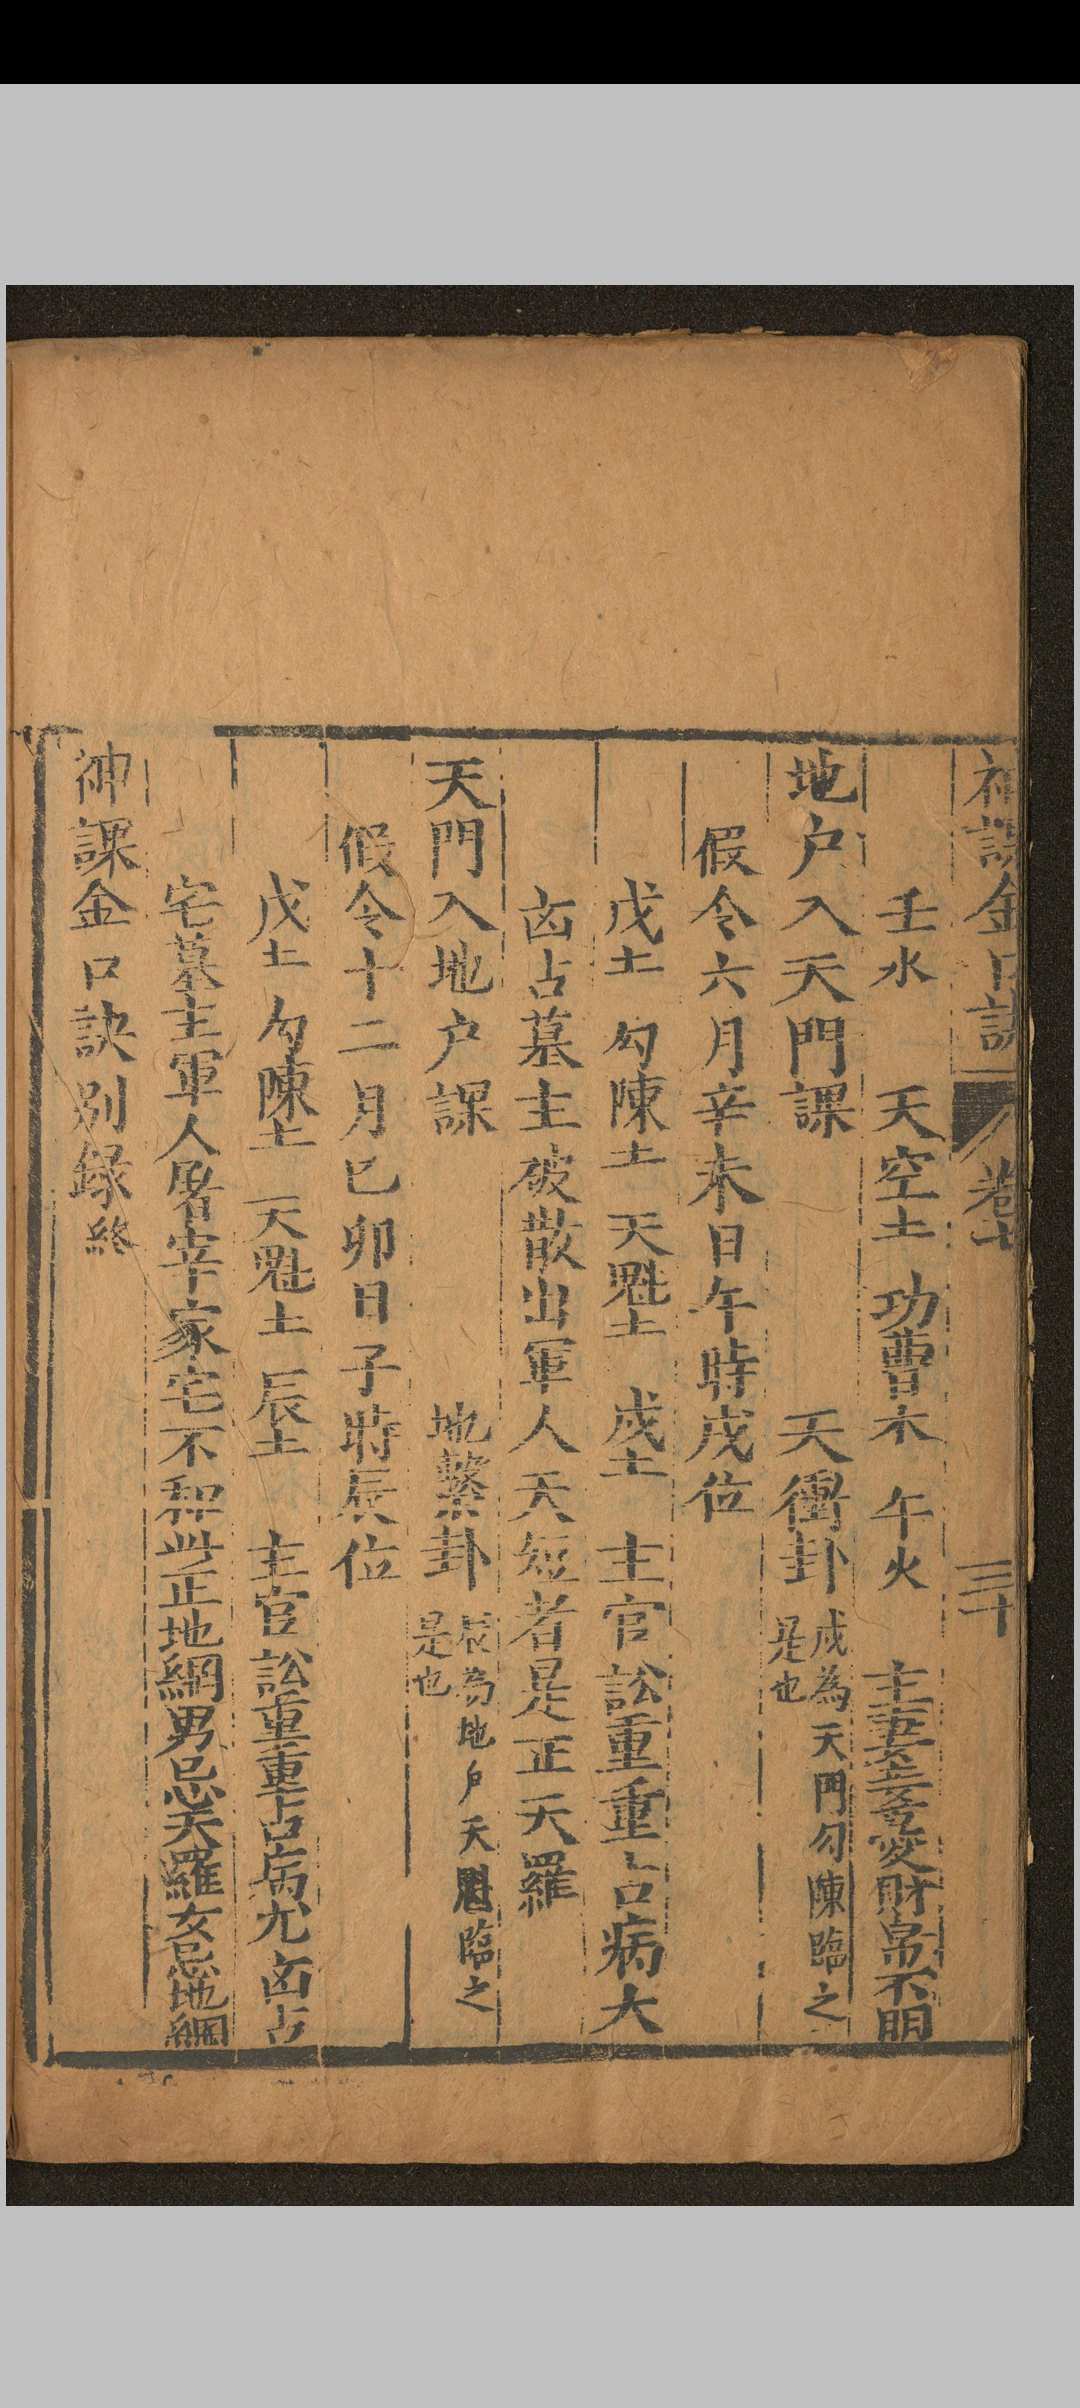 神課金口訣 卷七 三十
壬水 天空土 功曹木 午火 主妻妾愛財帛不明
地户入天門課 天衝卦 戌為天門勾陳臨之是也
假令六月辛未日午時戌位
戊土 勾陳土 天魁土 戌土 主官訟重重占病大
凶占墓主破散出軍人夭短者是正天羅
天門入地户課 地繫卦 辰為地户天魁臨之是也
假令十二月己卯日子時辰位
戊土 勾陳土 天魁土 辰土 主官訟重重占病尤凶占
宅墓主軍人屠宰家宅不和此正地網男忌天羅女忌地網
神課金口訣別録終